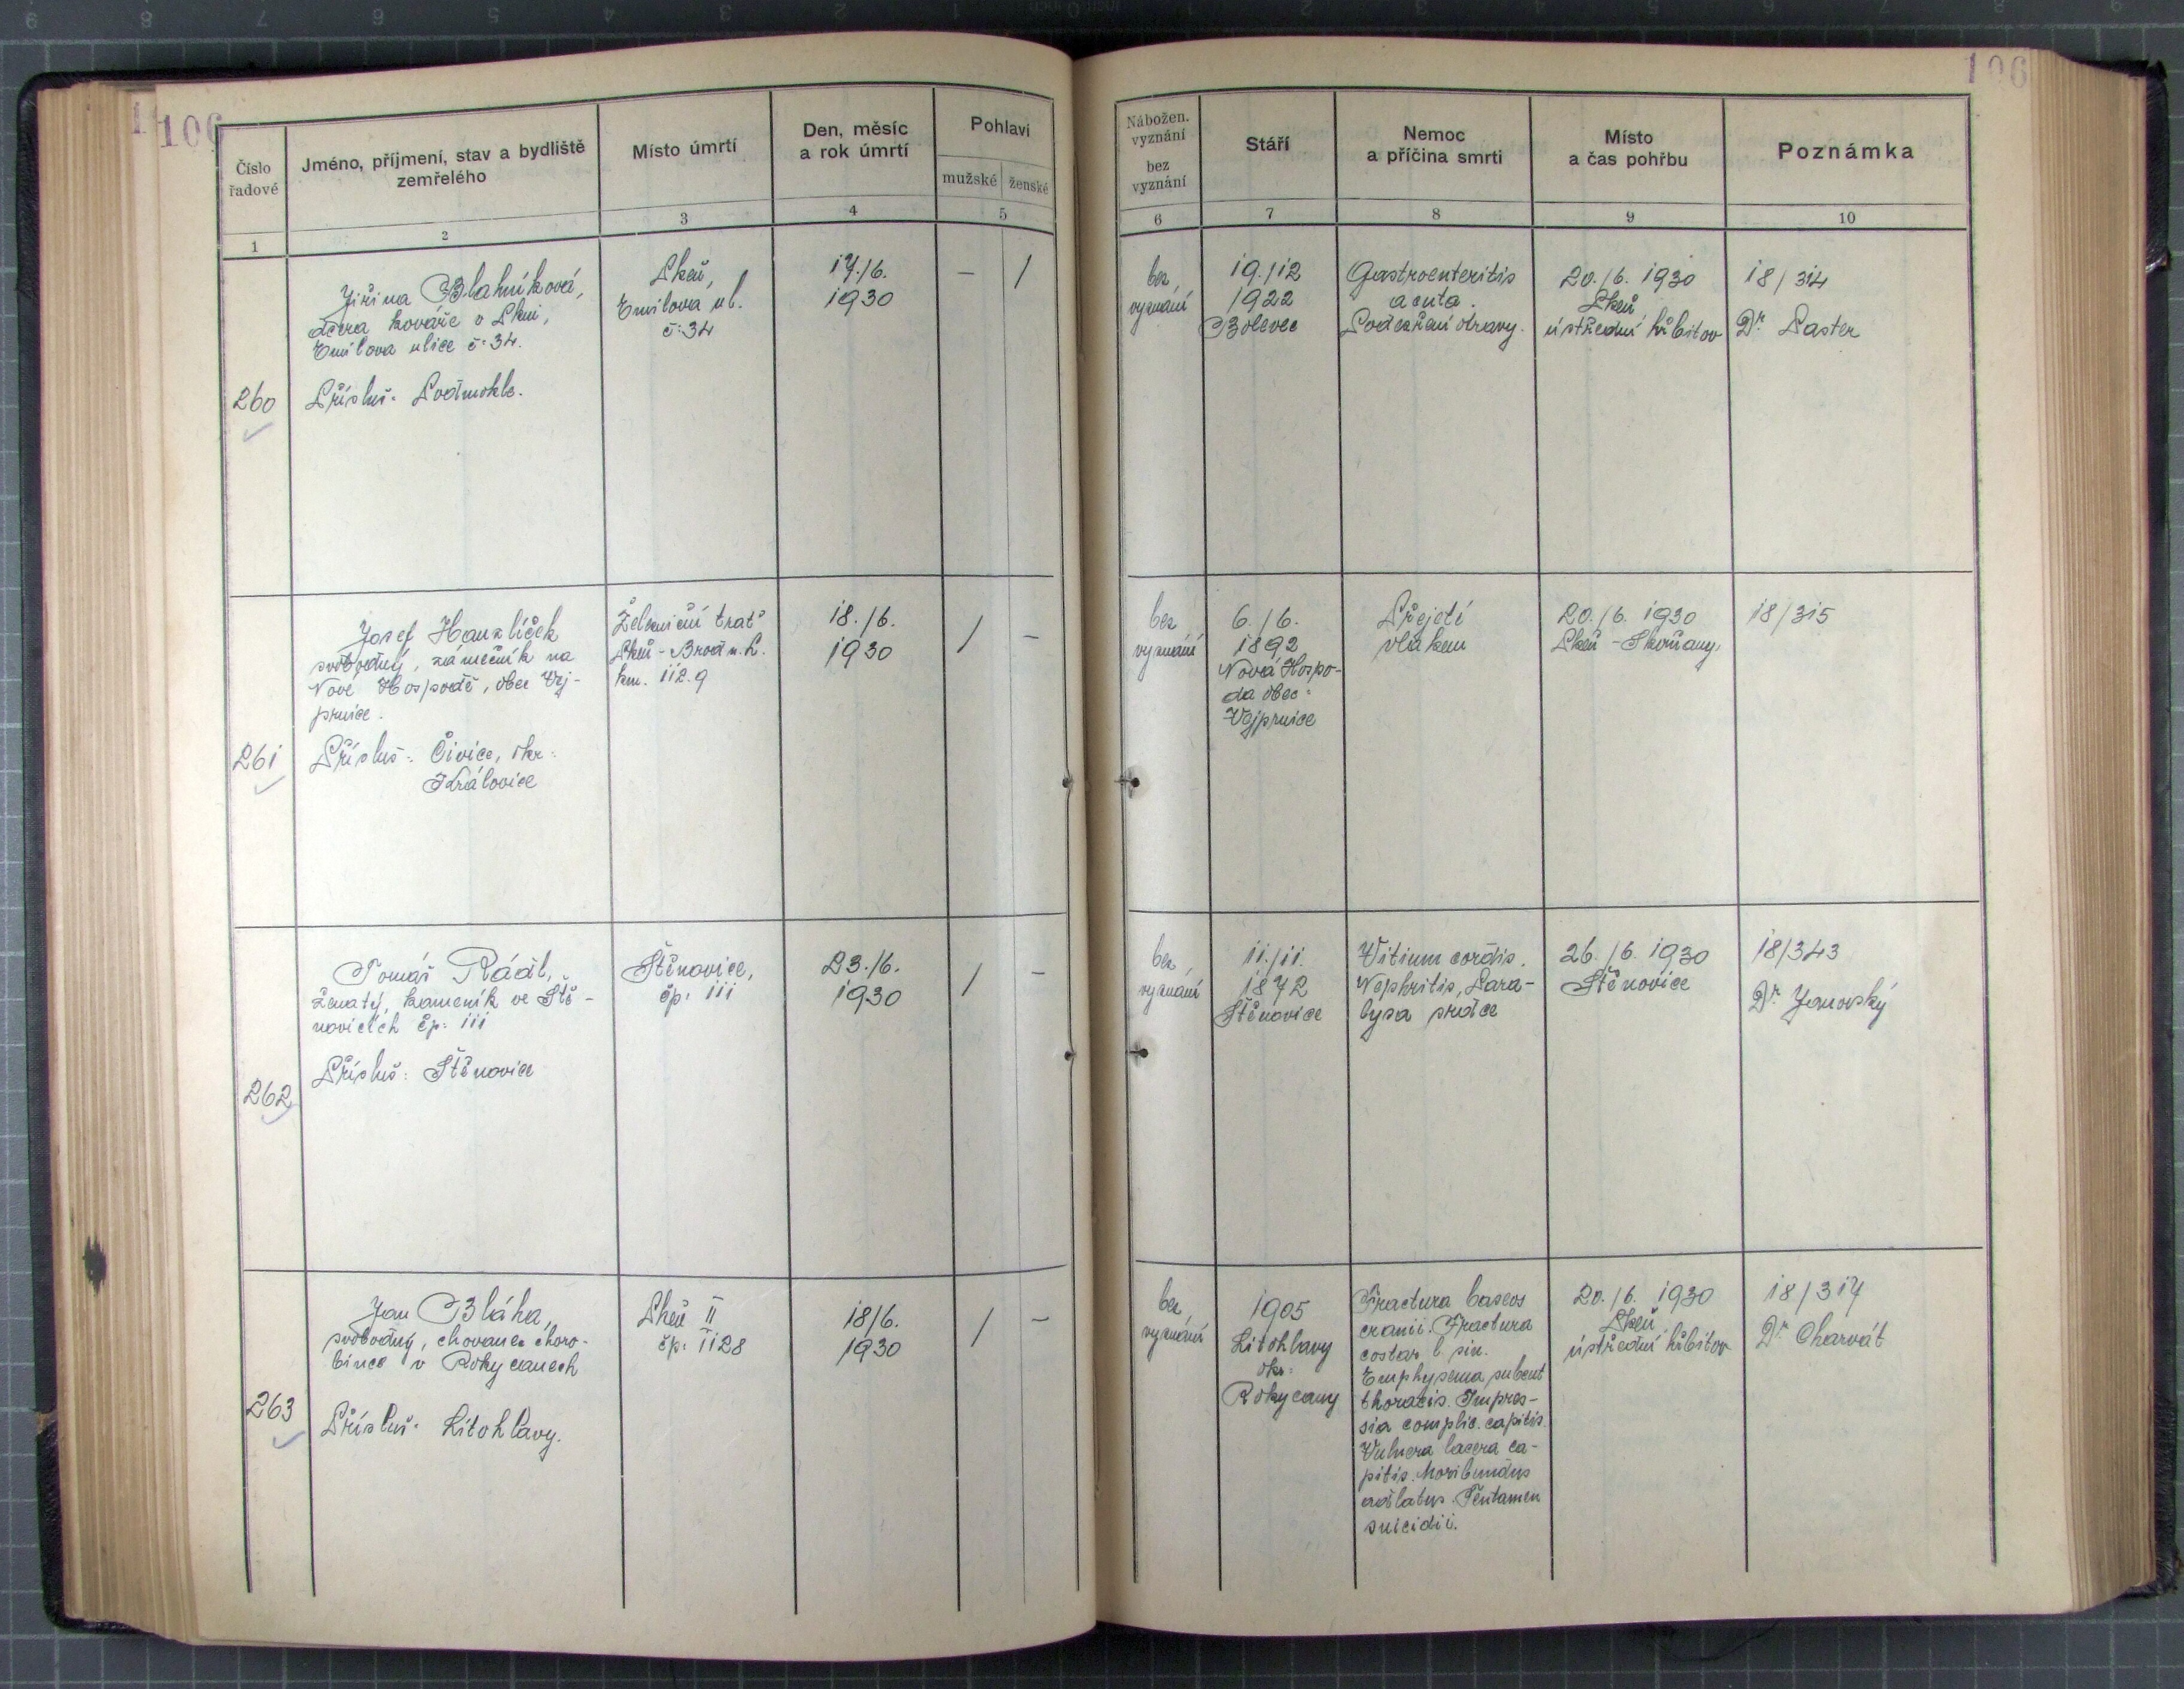 106
106
Číslo
řadové
Jméno, příjmení, stav a bydliště
zemřelého
Místo úmrtí
Den, měsíc
a rok úmrtí
Pohlaví
mužské
ženské
Nábožen.
vyznání
bez
vyznání
Stáří
Nemoc
a příčina smrti
Místo
a čas pohřbu
Poznámka
1
2
3
4
5
6
7
8
9
10
260
Jiřina Blahníková,
dcera kováře v Plzni,
Emilova ulice č: 34.
Přísluš: Podmokle.
Plzeň,
Emilova ul.
č: 34
17./6.
1930
–
/
bez
vyznání
19./12
1922
Bolevec
Gastroenteritis
acuta.
Podezření otravy.
20./6. 1930
Plzeň
ústřední hřbitov
18/314
Dr. Paster
261
Josef Hanzlíček
svobodný, zámečník na
Nové Hospodě, obec Vej-
prnice.
Přísluš: Čivice, okr:
Královice
Želzniční trať
Plzeň - Brod n. L.
km. 112.9
18./6.
1930
/
–
bez
vyznání
6./6.
1892
Nová Hospo-
da obec:
Vejprnice
Přejetí
vlakem
20./6. 1930
Plzeň - Skvrňany.
18/315
262
Tomáš Rádl,
ženatý, kameník ve Ště-
novicích čp: 111
Přísluš: Štěnovice
Štěnovice,
čp: 111
23./6.
1930
/
–
bez
vyznání
11./11.
1872
Štěnovice
Vitium cordis.
Nephritis, Para-
lysa srdce
26./6. 1930
Štěnovice
18/343
Dr. Janovský
263
Jan Bláha,
svobodný, chovanec choro-
bince v Rokycanech
Přísluš: Litohlavy.
Plzeň II
čp: 1128
18/6.
1930
/
–
bez
vyznání
1905
Litohlavy
okr:
Rokycany
Fractura baseos
cranii. Fractura
costar. l. sin.
Emphysema subcut
thoracis. Impres-
sia complic. capitis.
Vulnera lacera ca-
pitis. Moribundus
adlatus. Tentamen
suicidii.
20./6. 1930
Plzeň
ústřední hřbitov
18/317
Dr. Charvát